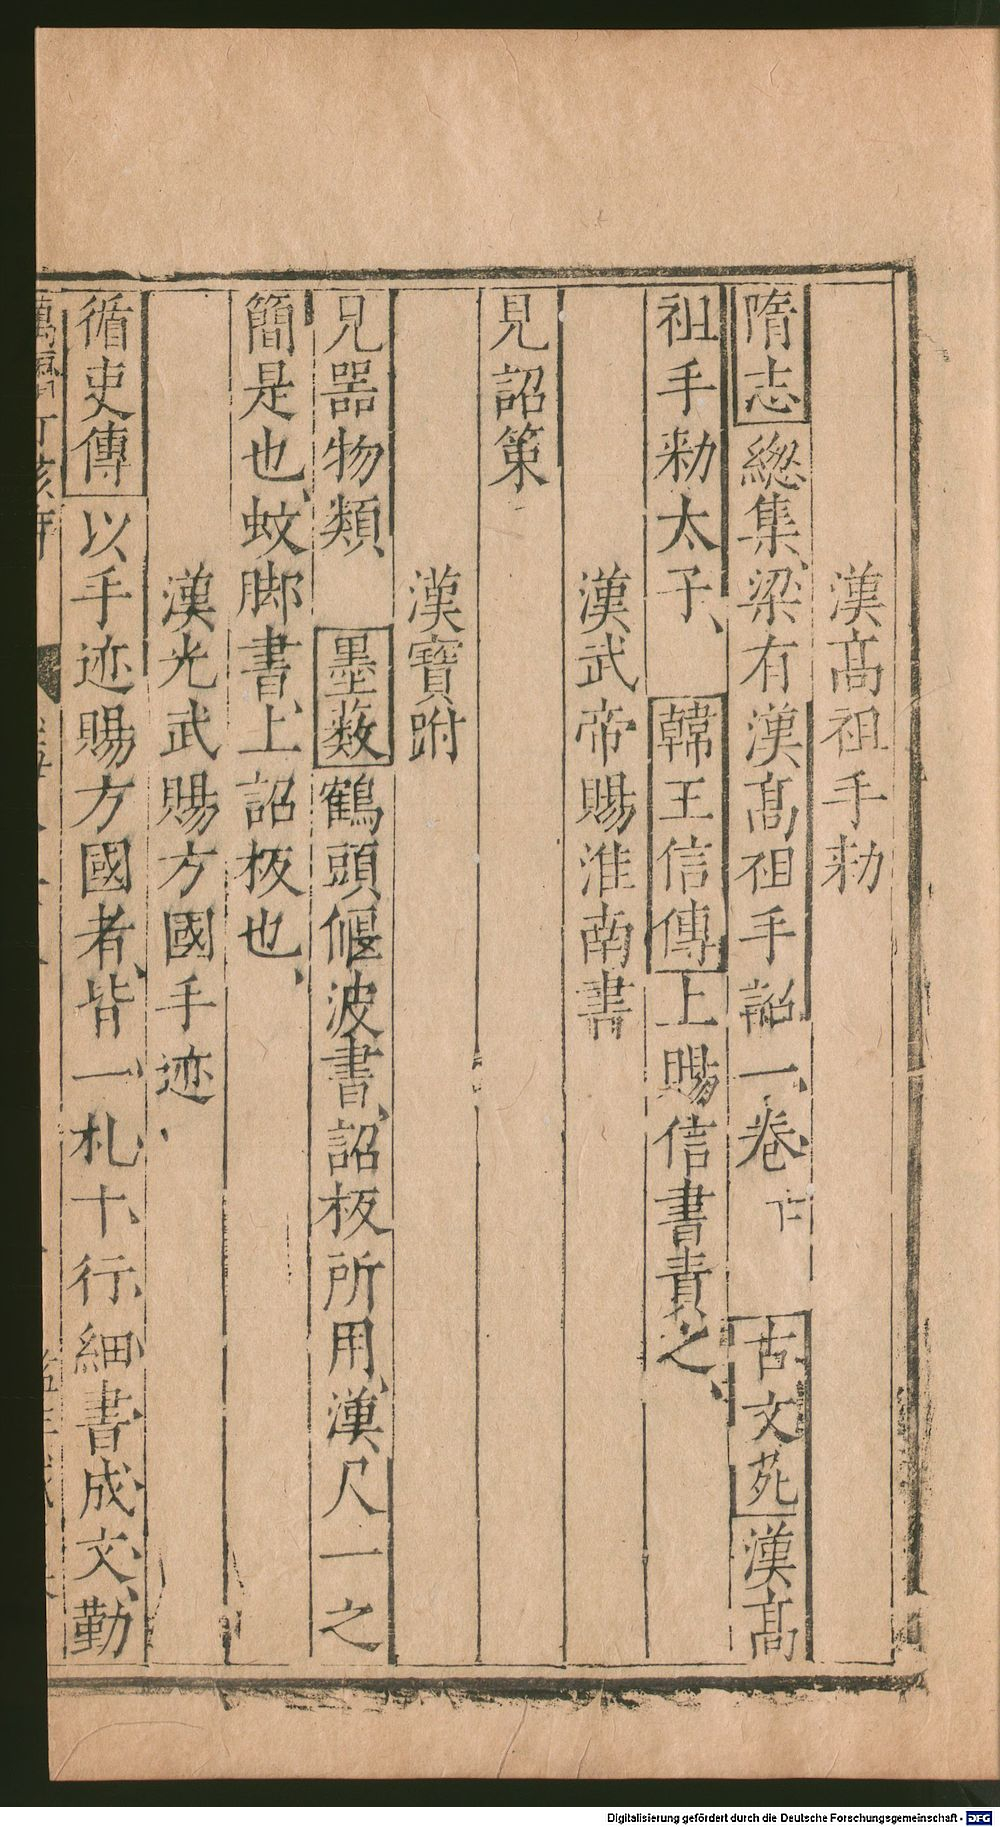 漢髙祖手勑
隋志總集、梁有漢髙祖手詔一卷、亡　古文苑漢髙
祖手勑太子、　韓王信傳上賜信書責之、
漢武帝賜淮南書
見詔策
漢寶跗
見器物類、　墨藪鶴頭偃波書、詔板所用、漢尺一之
簡是也、蚊脚書、上詔板也、
漢光武賜方國手迹
循吏傳以手迹賜方國者、皆一札十行、細書成文、勤
Digitalisierung gefördert durch die Deutsche Forschungsgemeinschaft - DFG